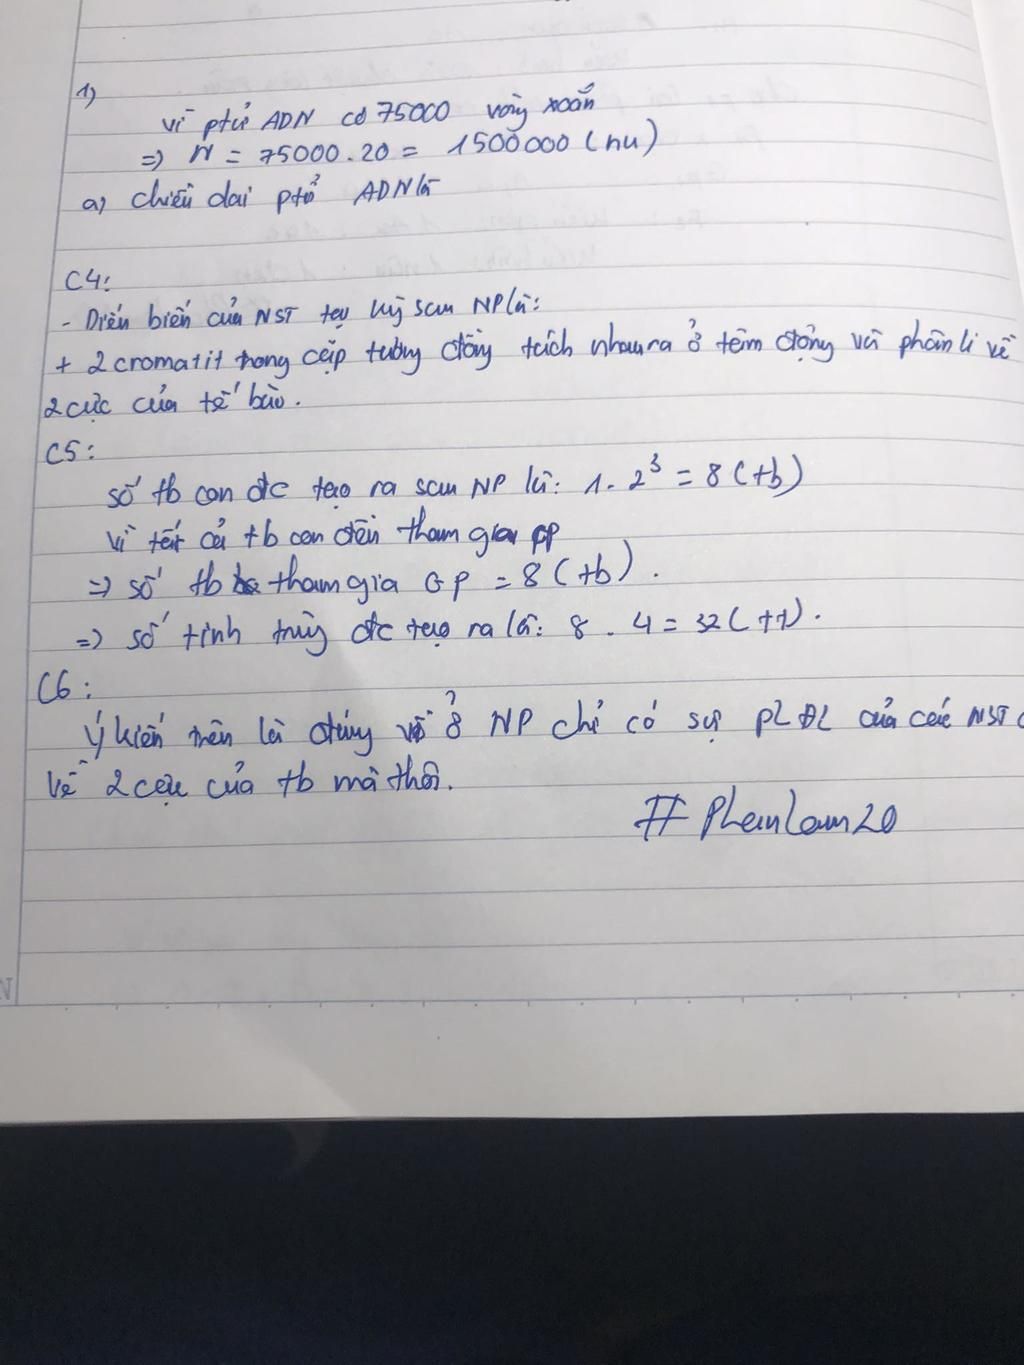 1)
vì ptử ADN có 75000 vòng xoắn
=> N = 75000.20 = 1500000 (nu)
a) chiều dai ptử ADN là
C4:
- Diễn biến của NST tại kỳ sau NP là:
+ 2 cromatit trong cặp tương đồng tách nhau ra ở tâm động và phân li về
2 cực của tế bào.
C5:
số tb con đc tạo ra sau NP là: 1. 2³ = 8 (tb)
vì tất cả tb con đều tham gia GP
=> số tb tham gia GP = 8 (tb).
=> số tinh trùng đc tạo ra là: 8 . 4 = 32 (tt).
C6:
Ý kiến trên là đúng vì ở NP chỉ có sự PLĐL của các NST
về 2 cực của tb mà thôi.
# Phanlam20
N